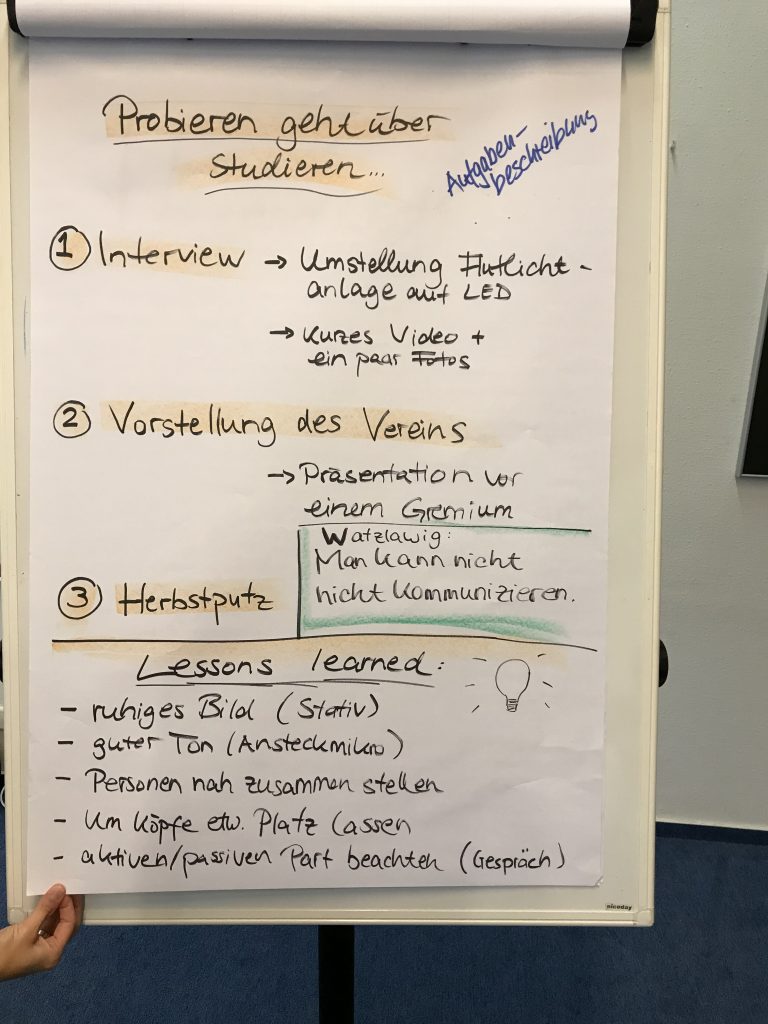 Probieren geht über
Studieren...
Aufgaben-
beschreibung
1 Interview → Umstellung Flutlicht-
anlage auf LED
→ Kurzes Video +
ein paar Fotos
2 Vorstellung des Vereins
→ Präsentation vor
einem Gremium
Watzlawig:
Man kann nicht
nicht kommunizieren.
3 Herbstputz
Lessons learned:
- ruhiges Bild (Stativ)
- guter Ton (Ansteckmikro)
- Personen nah zusammen stellen
- Um Köpfe etw. Platz lassen
- aktiven/passiven Part beachten (Gespräch)
nicoday